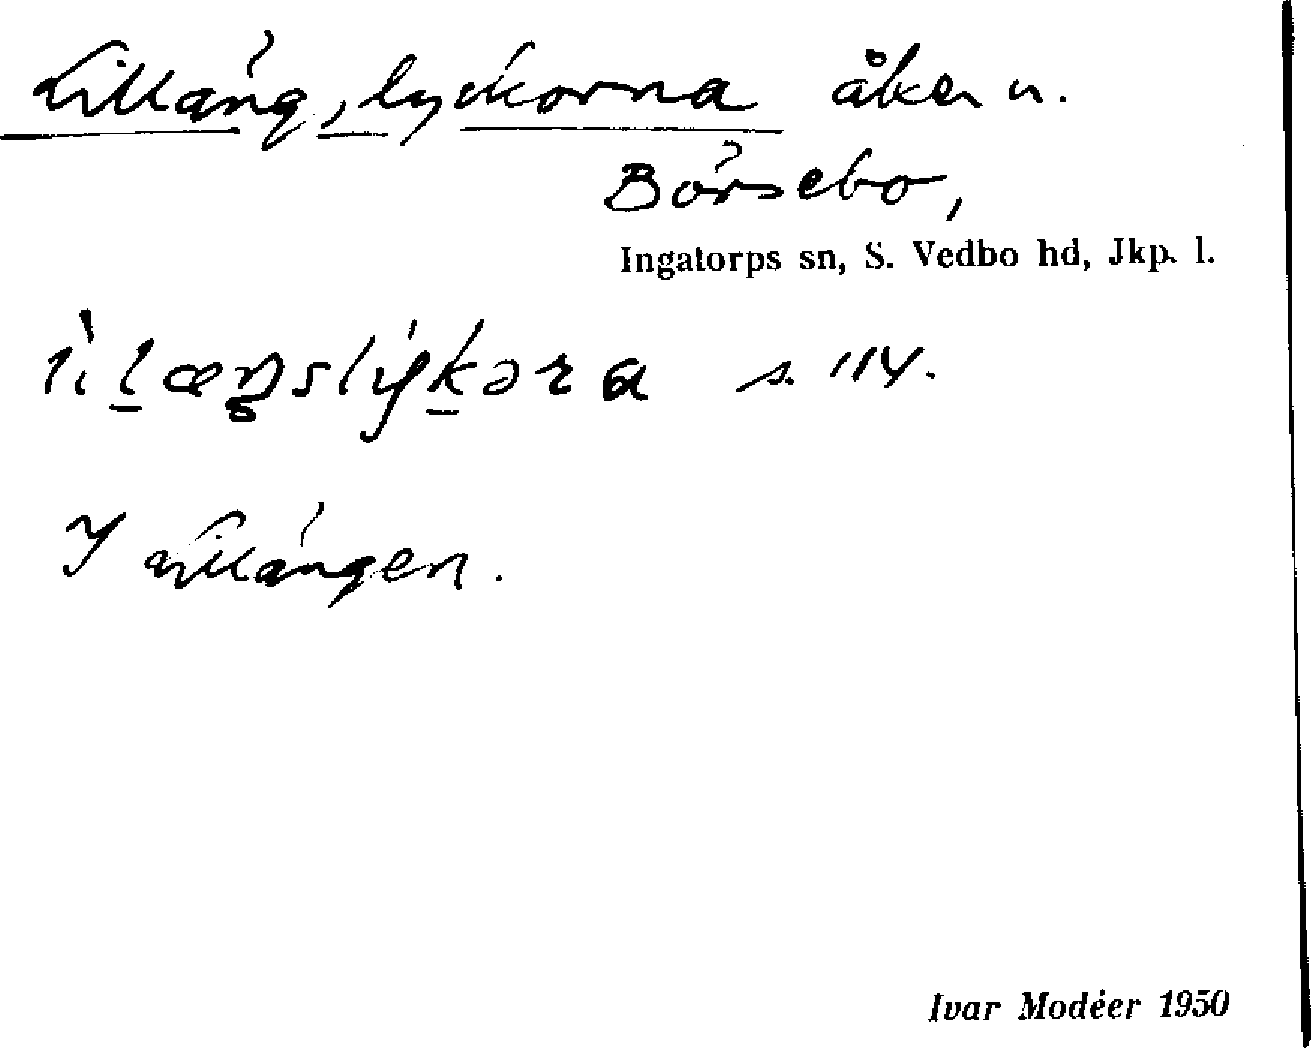 Lillängslyckorna åker n.
Börsebo,
Ingatorps sn, S. Vedbo hd, Jkp. l.
s. 114.
I Lillängen.
Ivar Modéer 1950